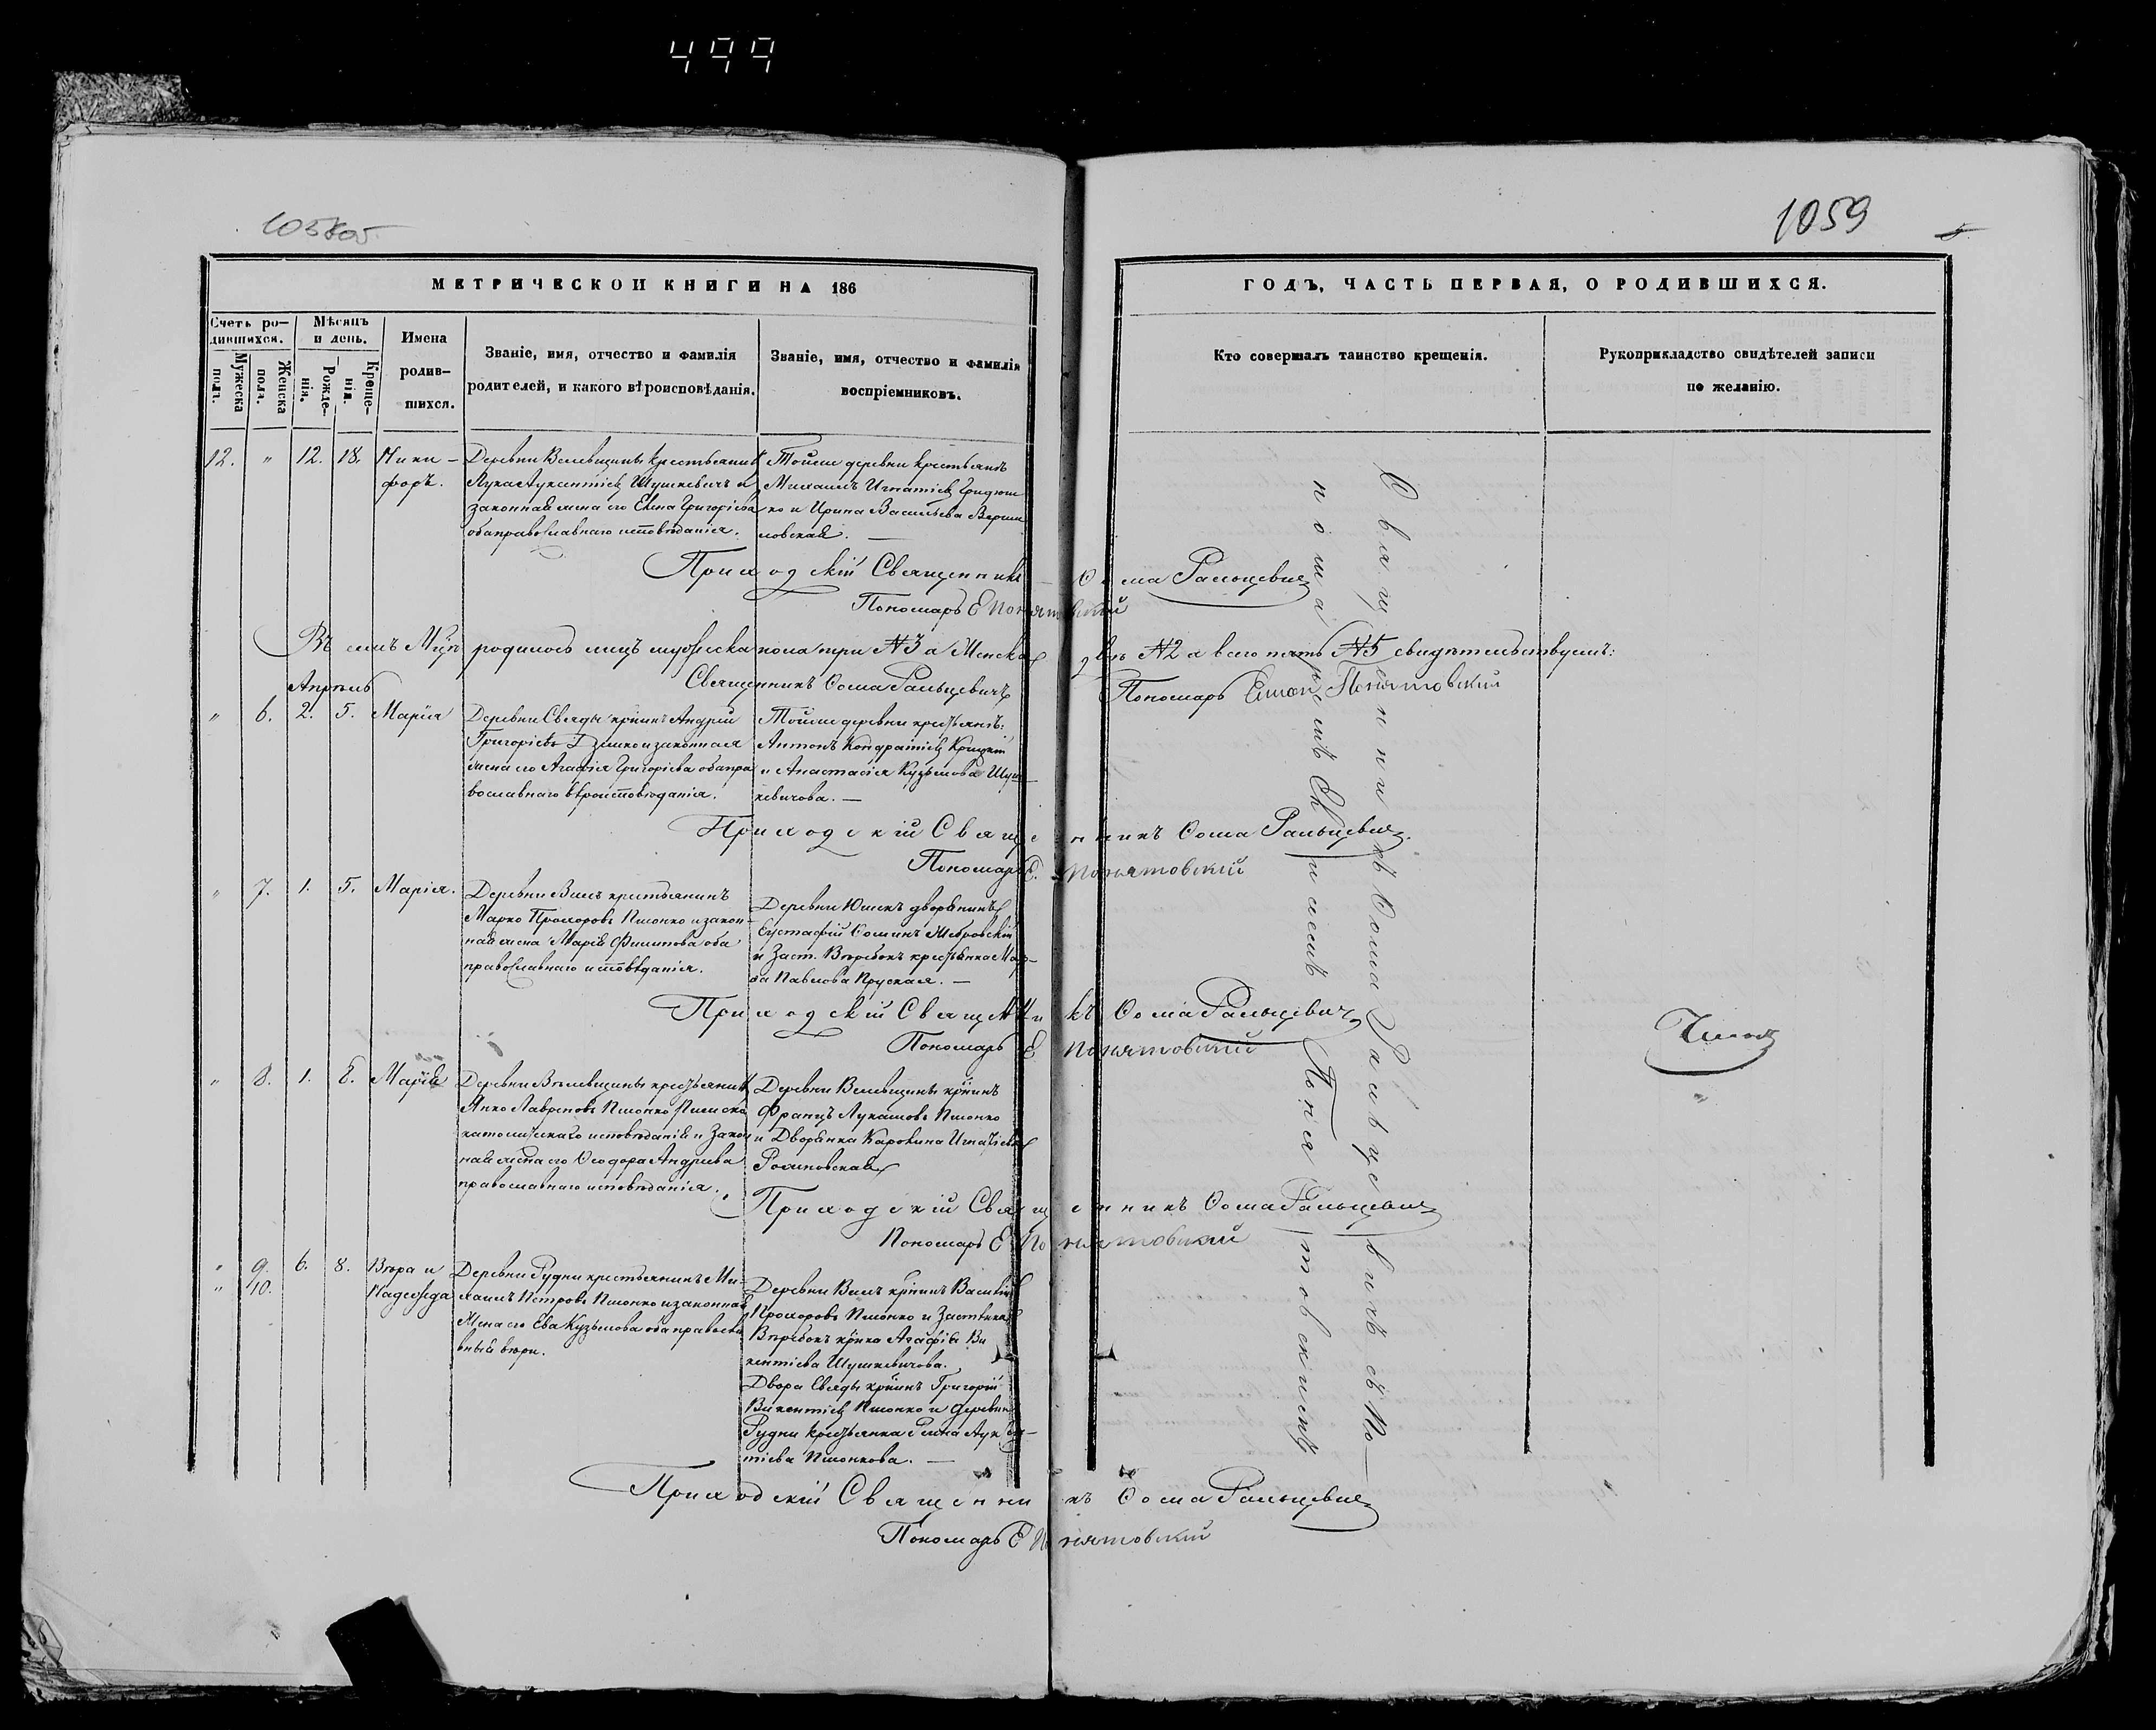 499
1059
МЕТРИЧЕСКОЙ КНИГИ НА 186
Счетъ ро-
дившихся.
Мужеска
пола.
Женска
пола.
Мѣсяцъ
и день.
Рожде-
нія.
Креще-
нія.
Имена
родив-
шихся.
Званіе, имя, отчество и фамилія
родителей, и какого вѣроисповѣданія.
Званіе, имя, отчество и фамилія
воспріемниковъ.
ГОДЪ, ЧАСТЬ ПЕРВАЯ, О РОДИВШИХСЯ.
Кто совершалъ таинство крещенія.
Рукоприкладство свидѣтелей записи
по желанію.
12. " 12. 18. Ники-
форъ.
Деревни Велевщины крестьянинъ
Лука Лукантіевъ Шушкевичъ и
законная жена его Елена Григоріева
оба православнаго исповѣданія.
Тойже деревни крестьянинъ
Михаилъ Игнатіевъ Гридюш
ко и Ирина Васильева Верши
ловская. —
Приходскій Священникъ Ѳома Ральцевичъ
Пономарь Е Понятовскій
Въ семъ Мцѣ родилось лицъ мужеска пола три №3 а Женска двѣ №2 а всего пять №5 свидѣтельствуемъ:
Священникъ Ѳома Ральцевичъ
Пономарь Понятовскій
Апрѣль
" 6. 2. 5. Марія
Деревни Свяды крнинъ Андрей
Григорьевъ и законная
жена его Агафія Григорьева оба пра
вославнаго вѣроисповѣданія.
Тойже деревни крестьянъ:
Антонъ Кондратіевъ
и Анастасія Кузьмова Шуш-
кевичова. —
Приходскій Священникъ Ѳома Ральцевичъ.
Пономарь Е. Понятовскій
" 7. 1. 5. Марія.
Деревни Вилъ крестьянинъ
Марко Прохоровъ Пшонко и закон-
ная жена Марія Филипова оба
православнаго исповѣданія.
Деревни дворянинъ
Евстафій Ѳоминъ
и Заст. Вѣребокъ крестьянка Мар-
ѳа Павлова Пруская. —
Приходскій Священникъ Ѳома Ральцевичъ
Пономарь Е Понятовскій
" 8. 1. 8. Марія
Деревни Велевщины крестьянинъ
Янко Лавреновъ Пшонко Римско
католическаго исповѣданія и Закон
ная жена его Ѳеодора Андреева
православнаго исповѣданія.
Деревни Велевщины крнинъ
Францъ Лукашовъ Пшонко
и Дворянка Каролина Игнатіева
Приходскій Священникъ Ѳома Ральцевичъ
Пономарь Е Понятовскій
" 9. 6. 8. Вѣра и
" 10. Надежда
Деревни Рудни крестьянинъ Ми-
хаилъ Петровъ Пшонко и законная
Жена его Ева Кузьмова оба православ
ный вѣры.
Деревни Вилъ крнинъ Василій
Прохоровъ Пшонко и Застѣнка
Вѣребокъ крнка Агафія Ви
кентіева Шушкевичова.
Двора Свяды крнинъ Григорій
Викентіевъ Пшонко и деревни
Рудни крестьянка Елена Лукан-
тіева Пшонкова. —
Приходскій Священникъ Ѳома Ральцевичъ
Пономарь Е Понятовскій
Священникъ Ѳома Ральцевичъ съ По-
номаремъ Понятовскимъ